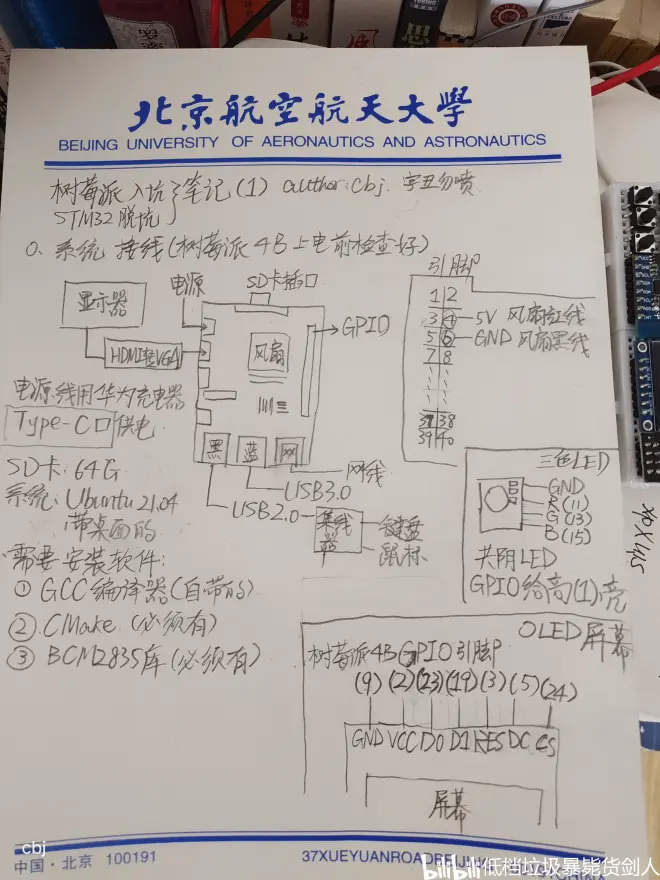 北京航空航天大學
BEIJING UNIVERSITY OF AERONAUTICS AND ASTRONAUTICS
树莓派入坑笔记(1) author:cbj. 字丑勿喷
STM32脱坑
0. 系统接线(树莓派4B上电前检查好)
显示器
电源
SD卡插口
HDMI转VGA
风扇
GPIO
引脚
1 2
3 4 5V 风扇红线
5 6 GND 风扇黑线
7 8
37 38
39 40
电源线用华为充电器
Type-C口供电
黑 蓝 网
网线
USB3.0
USB2.0
集线器
键盘
鼠标
SD卡:64G
系统:Ubuntu21.04
带桌面的
三色LED
GND
R(11)
G(13)
B(15)
共阴LED
GPIO给高(1)亮
需要安装软件:
① GCC编译器(自带的)
② CMake (必须有)
③ BCM2835库(必须有)
OLED屏幕
树莓派4B GPIO引脚
(9) (2) (23) (19) (3) (5) (24)
GND VCC D0 D1 RES DC CS
屏幕
cbj
中国·北京 100191
37XUEYUANROAD
bilibili 低档垃圾暴毙货剑人